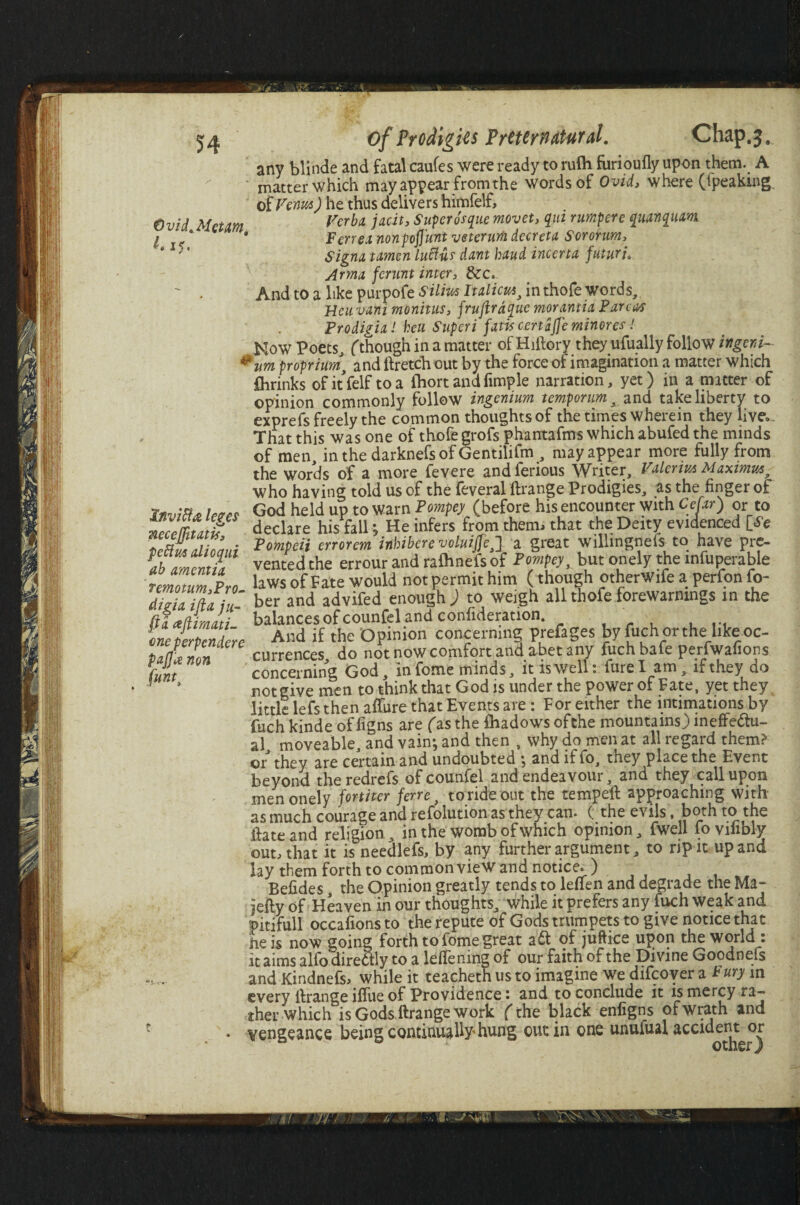 54 Of Prodigies Preternatural. Chap.3.
any blinde and fatal causes were ready to rush furiously upon them. A
matter which may appear from the words of Ovid, where (speaking
of Venus) he thus delivers himself,
Ovid. Metam.
l. 15.
Verba jacit, Superósque movet, qui rumpere quanquam
Ferrea non possunt veterum decreta Sororum,
Signa tamen luctûs dant haud incerta futuri.
Arma ferunt inter, &c.
And to a like purpose Silius Italicus, in those words,
Heu vani monitus, frustráque morantia Parcas
Prodigia! heu Superi fatis certásse minores!
Now Poets, (though in a matter of History they usually follow ingeni-
um proprium, and stretch out by the force of imagination a matter which
shrinks of it self to a short and simple narration, yet) in a matter of
opinion commonly follow ingenium temporum, and take liberty to
express freely the common thoughts of the times wherein they live.
That this was one of those gross phantasms which abused the minds
of men, in the darkness of Gentilism, may appear more fully from
the words of a more severe and serious Writer, Valerius Maximus,
who having told us of the several strange Prodigies, as the finger of
God held up to warn Pompey (before his encounter with Cesar) or to
declare his fall; He infers from them, that the Deity evidenced [Se
Pompeii errorem inhibere voluisse,] a great willingness to have pre-
vented the errour and rashness of Pompey, but onely the insuperable
laws of Fate would not permit him (though otherwise a person so-
ber and advised enough) to weigh all those forewarnings in the
balances of counsel and consideration.
Invictæ leges
necessitatis,
pectus alioqui
ab amentia
remotum, Pro-
digia ista ju-
sta æstimati-
one perpendere
passæ non
sunt.
And if the Opinion concerning presages by such or the like oc-
currences, do not now comfort and abet any such base perswasions
concerning God, in some minds, it is well: sure I am, if they do
not give men to think that God is under the power of Fate, yet they
little less then assure that Events are: For either the intimations by
such kinde of signs are (as the shadows of the mountains) ineffectu-
al, moveable, and vain; and then, why do men at all regard them?
or they are certain and undoubted; and if so, they place the Event
beyond the redress of counsel and endeavour, and they call upon
men onely fortiter ferre, to ride out the tempest approaching with
as much courage and resolution as they can. (the evils, both to the
state and religion, in the womb of which opinion, swell so visibly
out, that it is needless, by any further argument, to rip it up and
lay them forth to common view and notice.)
Besides, the Opinion greatly tends to lessen and degrade the Ma-
jesty of Heaven in our thoughts, while it prefers any such weak and
pitifull occasions to the repute of Gods trumpets to give notice that
he is now going forth to some great act of justice upon the world:
it aims also directly to a lessening of our faith of the Divine Goodness
and Kindness, while it teacheth us to imagine we discover a Fury in
every strange issue of Providence: and to conclude it is mercy ra-
ther which is Gods strange work (the black ensigns of wrath and
vengeance being continually hung out in one unusual accident or
other)